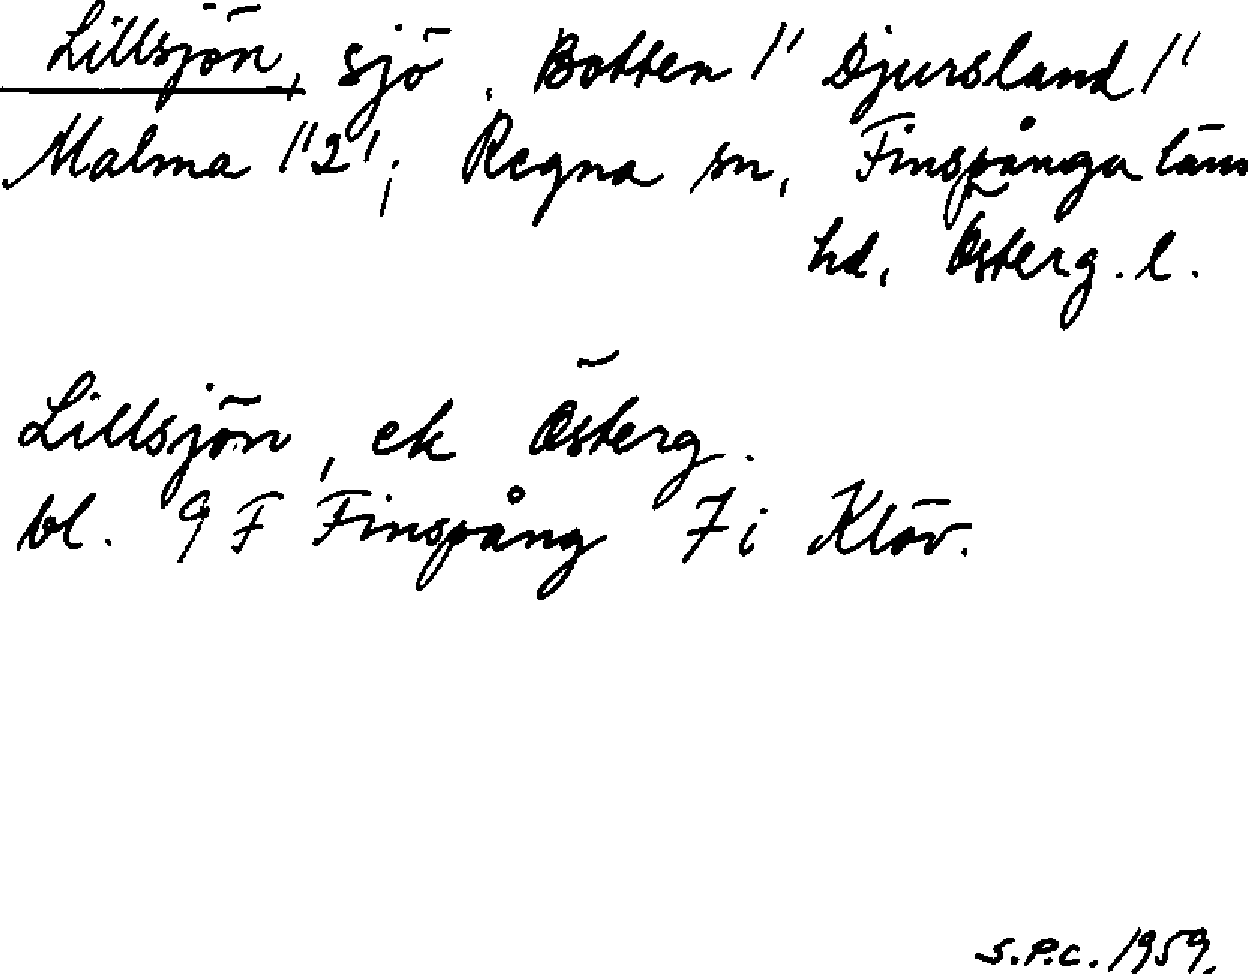 Lillsjön, sjö, Botten 1' Djursland 1'
Malma 1' 2'; Regna sn, Finspånga läns
hd, Österg. l.
Lillsjön, ek Österg.
bl. 9 F Finspång 7 i Klöv.
S.P.C. 1959.